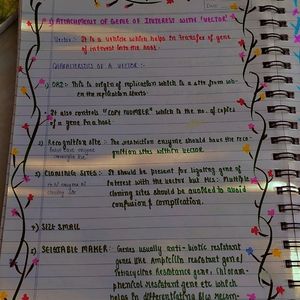 1) ATTACHMENT OF GENE OF INTEREST WITH "VECTOR"
Vector :- It is a vehicle which helps in transfer of gene
of interest into the host.
CHARACTERISTICS OF A VECTOR :-
1) ORI :- This is origin of replication which is a site from wh-
en the replication starts
It also controls "COPY NUMBER" which is the no. of copies
of a gene in a host.
2) Recognition site :- The restriction enzyme should have the reco-
gnition sites within vector.
3) CLONNING SITES :- It should be present for ligating gene of
interest with the vector but MCS: Multiple
cloning sites should be avoided to avoid
confusion & complication.
4) SIZE SMALL
5) SELECTABLE MAKER: Genes usually anti-biotic resistant
genes like Ampicillin resistant gene,
Tetracycline Resistance gene, Chloram-
phenicol resistant gene etc which
helps in differentiating b/w